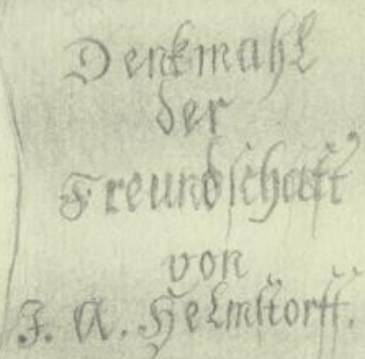 Denkmahl
der
Freundschaft
von
J. A. Helmstorff.